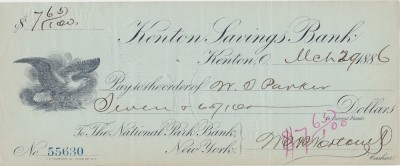 $ 7 65/100.
Kenton Savings Bank
Kenton, O. Mch 29 1886
Pay to the order of W. T. Parker
Seven & 65/100 Dollars
To The National Park Bank,
$7 65/100
No. 55630 New York.
Cashier.